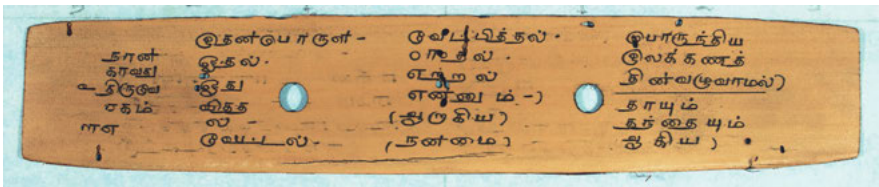 நான்
காவது
உ திருவெ
சகம்
இதன்பொருள் -
ஓதல் .
ஓது
வித்த
ல்
வேட்டல் .
வேட்பித்தல் .
ஏற்றல்
என்னும் -)
(நன்மை
பொருந்திய
இலக்கணத்
தின்வழுவாமல்)
தாயும்
தந்தையும்
ஆகிய)